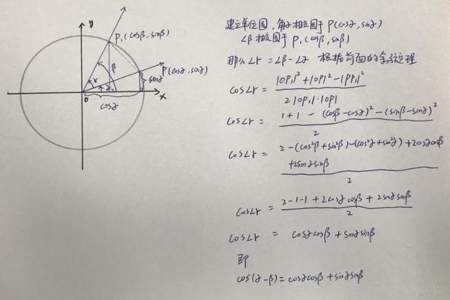 y
P₁(cosβ, sinβ)
P(cosα, sinα)
β
r
α
sinα
O
x
cosα
建立单位圆, 角α相交圆于 P(cosα, sinα)
∠β 相交圆于 P₁(cosβ, sinβ)
那么∠r = ∠β - ∠α 根据前面的余弦定理
cos∠r = |OP₁|² + |OP|² - |PP₁|² / 2|OP₁|·|OP|
cos∠r = 1 + 1 - (cosβ - cosα)² - (sinβ - sinα)² / 2
cos∠r = 2 - (cos²β + sin²β) - (cos²α + sin²α) + 2cosαcosβ
+ 2sinαsinβ / 2
cos∠r = 2 - 1 - 1 + 2cosαcosβ + 2sinαsinβ / 2
cos∠r = cosαcosβ + sinαsinβ
即
cos(α-β) = cosαcosβ + sinαsinβ